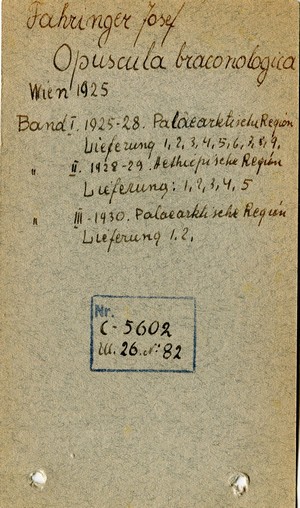 Fahringer Josef
Opuscula braconologica
Wien 1925
Band I. 1925-28. Palaearktische Region
Lieferung 1, 2, 3, 4, 5, 6, 7, 8, 9,
" II. 1928-29. Aethiopische Region
Lieferung: 1, 2, 3, 4, 5
" III - 1930. Palaearktische Región
Lieferung 1. 2,
Nr.
C - 5602
III. 26. N: 82